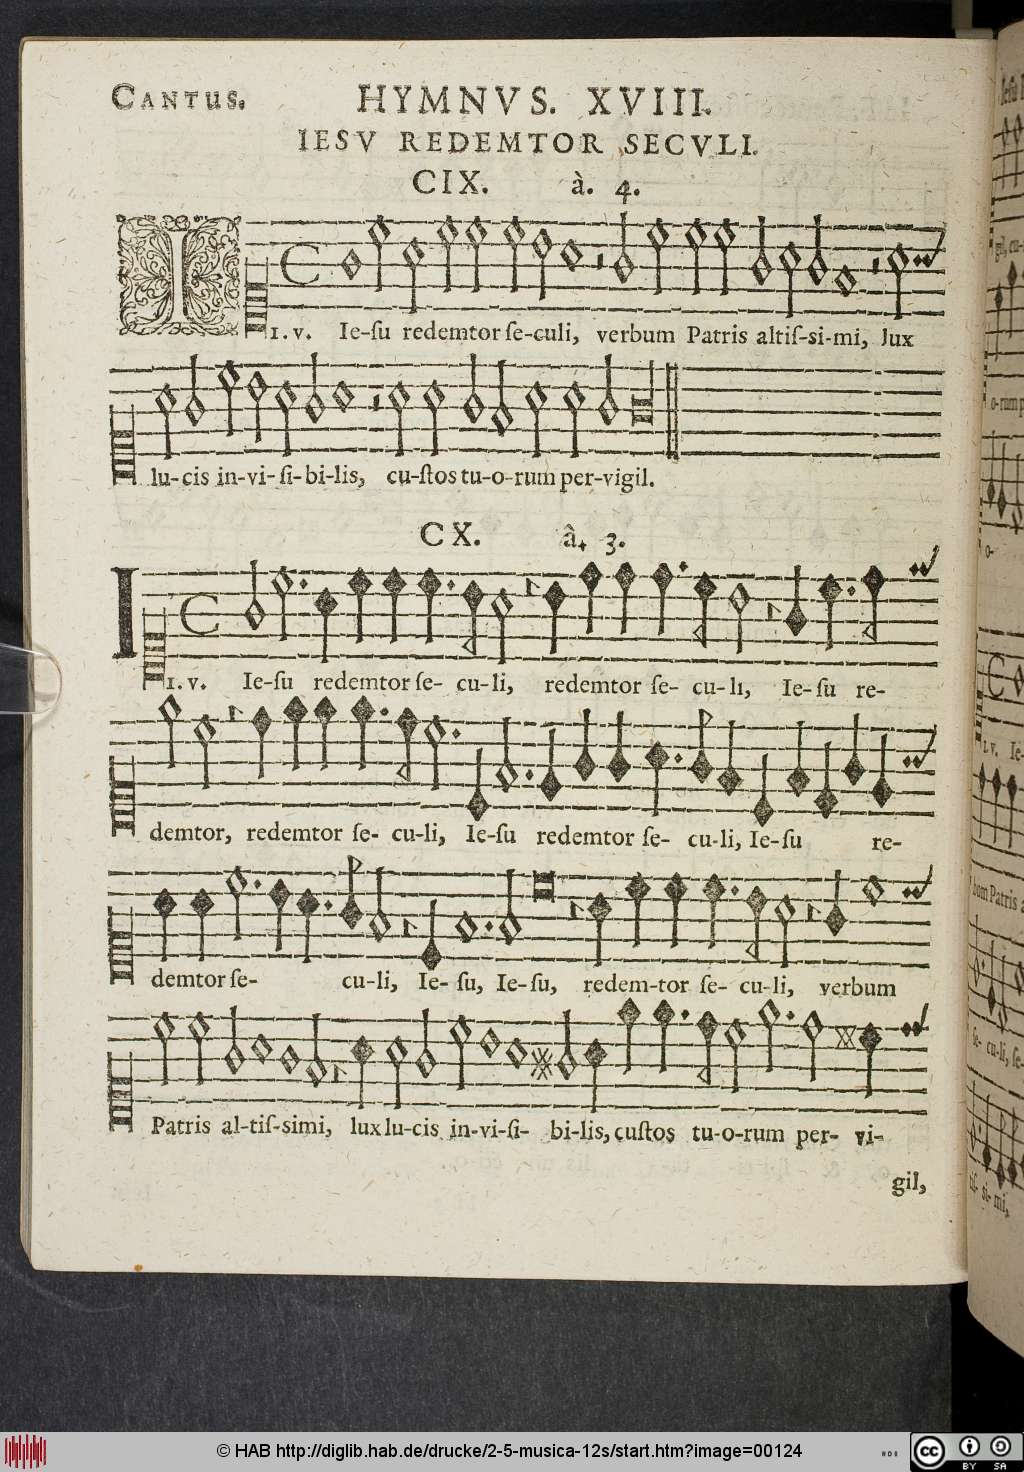 CANTUS. HYMNVS. XVIII.
IESV REDEMTOR SECVLI.
CIX. à. 4.
I
1. v. Ie-ſu redemtor ſe-culi, verbum Patris altiſ-si-mi, lux
lu-cis in-vi-ſi-bi-lis, cu-ſtos tu-o-rum per-vigil.
CX. à. 3.
I
1. v. Ie-ſu redemtor ſe- cu-li, redemtor ſe- cu-li, Ie-ſu re-
demtor, redemtor ſe- cu-li, Ie-ſu redemtor ſe- cu-li, Ie-ſu re-
demtor ſe- cu-li, Ie- ſu, Ie-ſu, redem-tor ſe- cu-li, verbum
Patris al-tiſ-simi, lux lu-cis in-vi-ſi- bi-lis, cuſtos tu-o-rum per- vi-
gil,
© HAB http://diglib.hab.de/drucke/2-5-musica-12s/start.htm?image=00124
cc BY SA